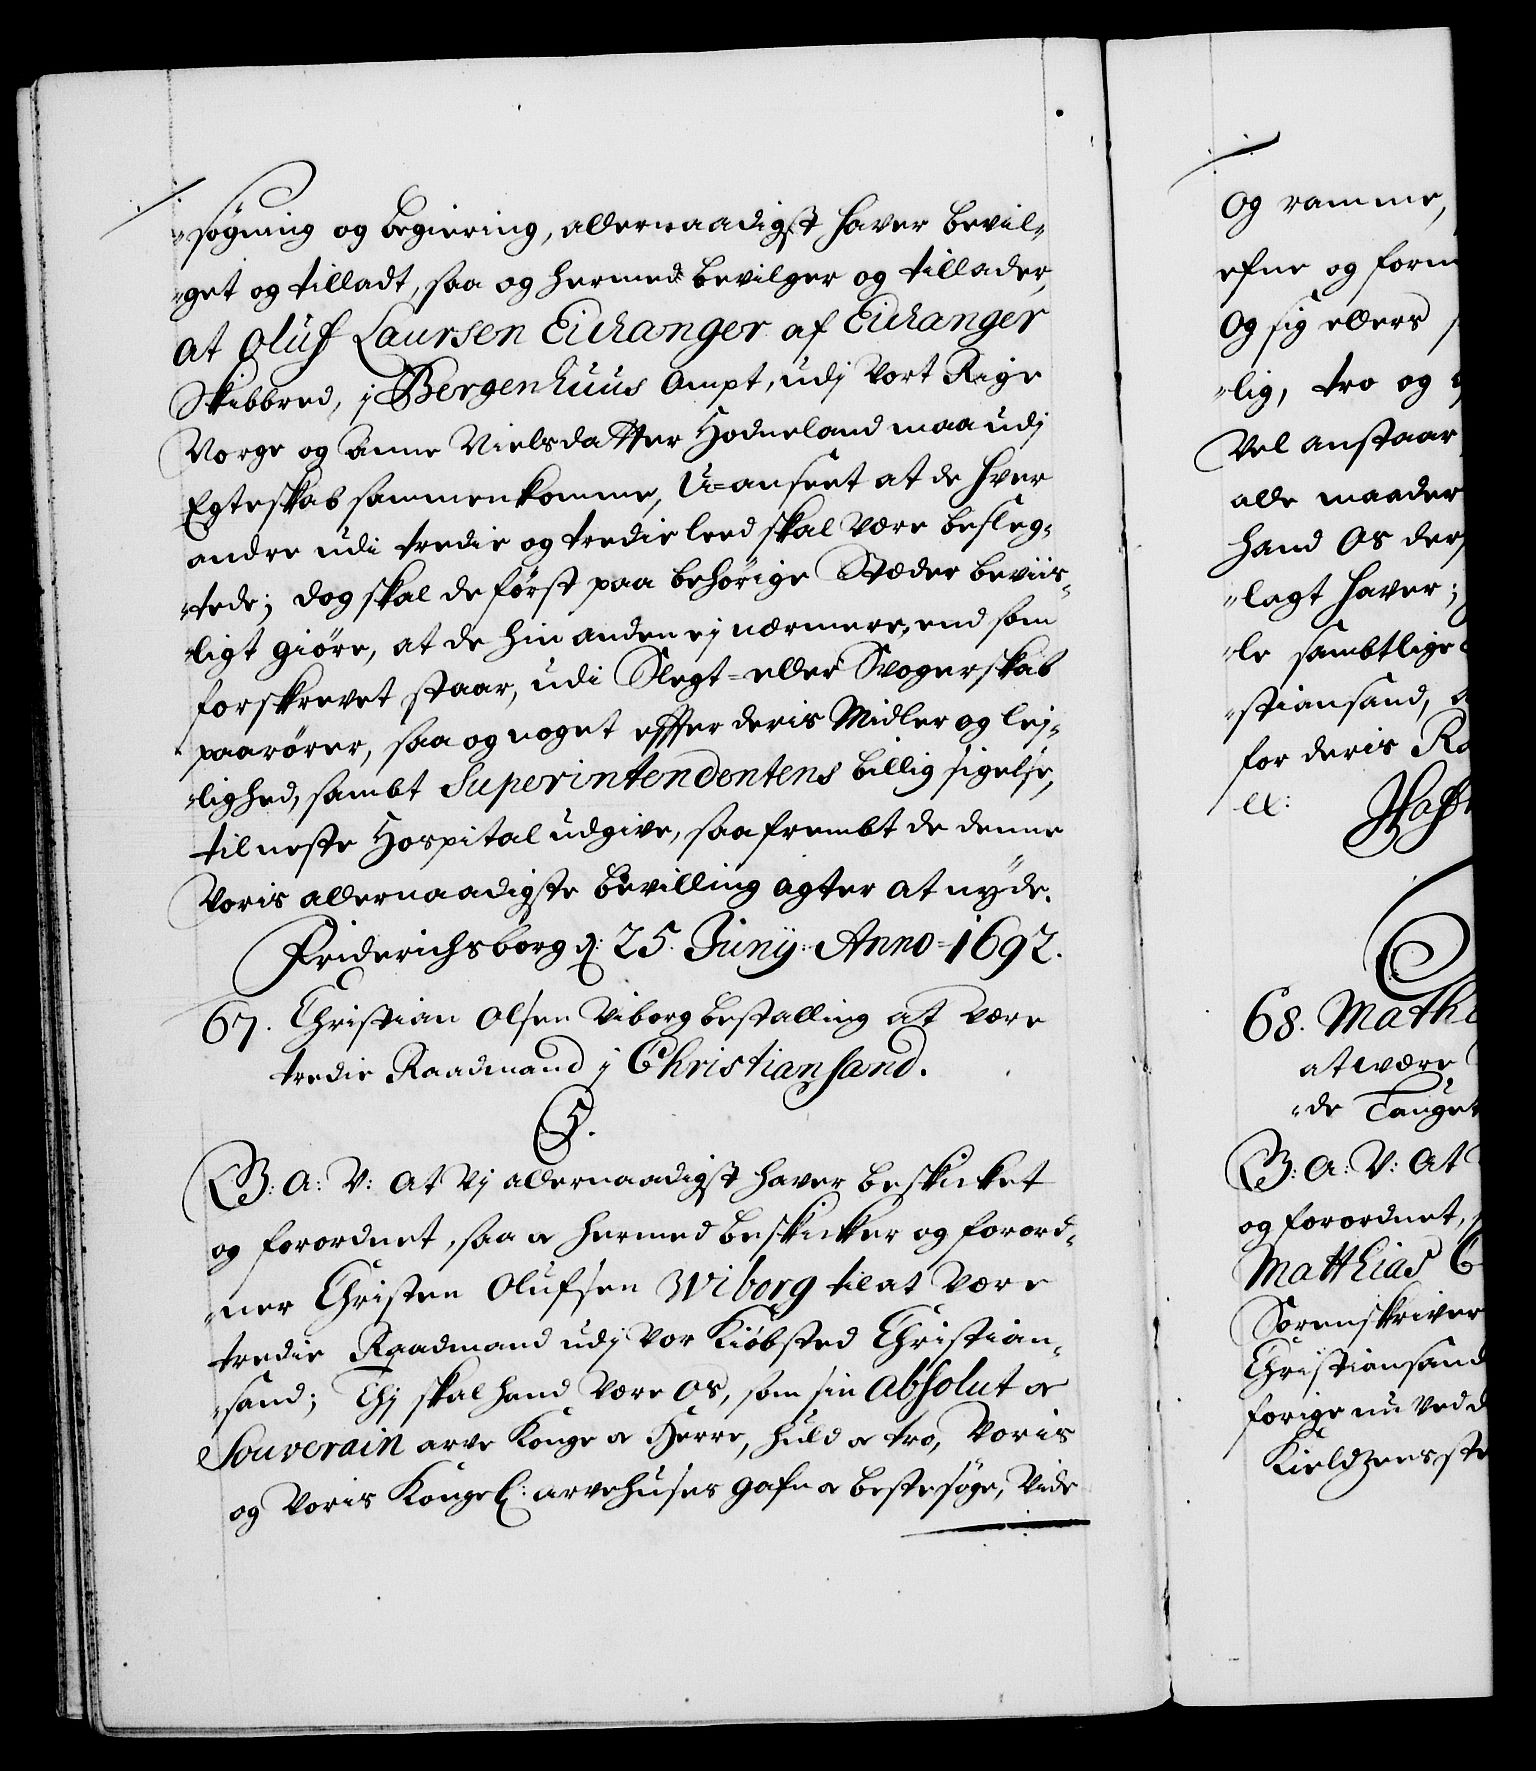 søgning og begiering, allernaadigst haver bevil-
get og tilladt, saa og hermed bevilger og tillader,
at Oluf Laursen Eichanger af Eichanger
Skibbred, j Bergenhuus Ampt, udj Vort Rige
Norge og Anne Nielsdatter Hodneland maa udj
Egteskab sammenkomme, U-anseet at de hver
andre udi tredie og tredie leed skal være besleg-
tede; dog skal de først paa behörige Stæder beviis-
ligt giöre, at de hin anden ej nærmere, end som
forskrevet staar, udi Slegt- eller Svogerskab
paarører, saa og noget effter deris Midler og lej-
lighed, sambt Superintendentens billig sigelse,
til neste Hospital udgive, saafrembt de denne
Voris allernaadigste bevilling agter at nyde.
Friderichsborg d: 25. Junij. Anno 1692.
67. Christian Olsen Viborg bestalling at være
tredie Raadmand j Christiansand.
C 5.
G: A: V: At Vj allernaadigst haver beskicket
og forordnet, saa & hermed beskicker og forord-
ner Christen Olufsen Wiborg til at Være
tredie Raadmand udj Vor Kiøbsted Christian-
sand; Thj skal hand Være Os, som sin Absolut &
Souverain arve Konge & Herre, huld & tro, Voris
og Voris Kongel: arvehuses gafn & beste søge, Vide
Og ramme,
efne og form
Og sig ellers
lig, tro og
Vel anstaar
alle maader
hand Os ders
lagt haver;
le sambtlige
stiansand,
for deris Ra
&c: Hafn
68. Math
at være
de Tanget
G: A: V: At
og forordnet,
Matthias C
Sorenskriver
Christiansand
forige nu Ved d
Kieldzens ste